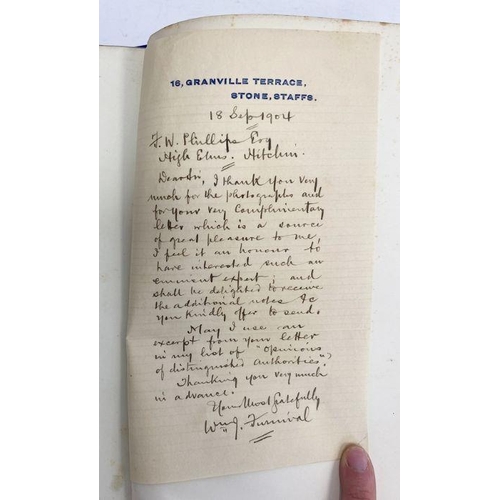 16, GRANVILLE TERRACE,
STONE, STAFFS.
18 Sep 1904
F. W. Phillips Esq
High Elms. Hitchin.
Dear Sir, I thank you very
much for the photographs and
for your very complimentary
letter which is a source
of great pleasure to me,
I feel it an honour to
have interested such an
eminent expert; and
shall be delighted to receive
the additional notes &c
you kindly offer to send.
May I use an
excerpt from your letter
in my list of "Opinions
of distinguished Authorities"?
Thanking you very much
in advance.
Yours Most Gratefully
Wm J. Furnival